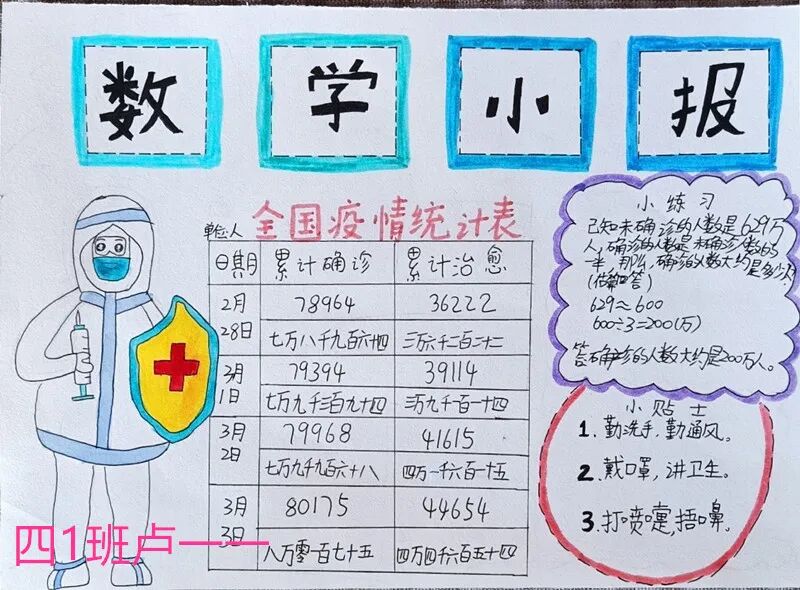 数 学 小 报
单位:人 全国疫情统计表
日期 累计确诊 累计治愈
2月28日 78964 36222
七万八千九百六十四 三万六千二百二十二
2月1日 79394 39114
七万九千三百九十四 三万九千一百一十四
3月2日 79968 41615
七万九千九百六十八 四万一千六百一十五
3月3日 80175 44654
八万零一百七十五 四万四千六百五十四
小练习
已知未确诊的人数是629万
人,确诊的人数是未确诊人数的
一半,那么,确诊的人数大约是多少?
629≈600
600÷3=200(万)
答:确诊的人数大约是200万人。
小贴士
1.勤洗手,勤通风。
2.戴口罩,讲卫生。
3.打喷嚏,捂嘴鼻。
四1班卢一一